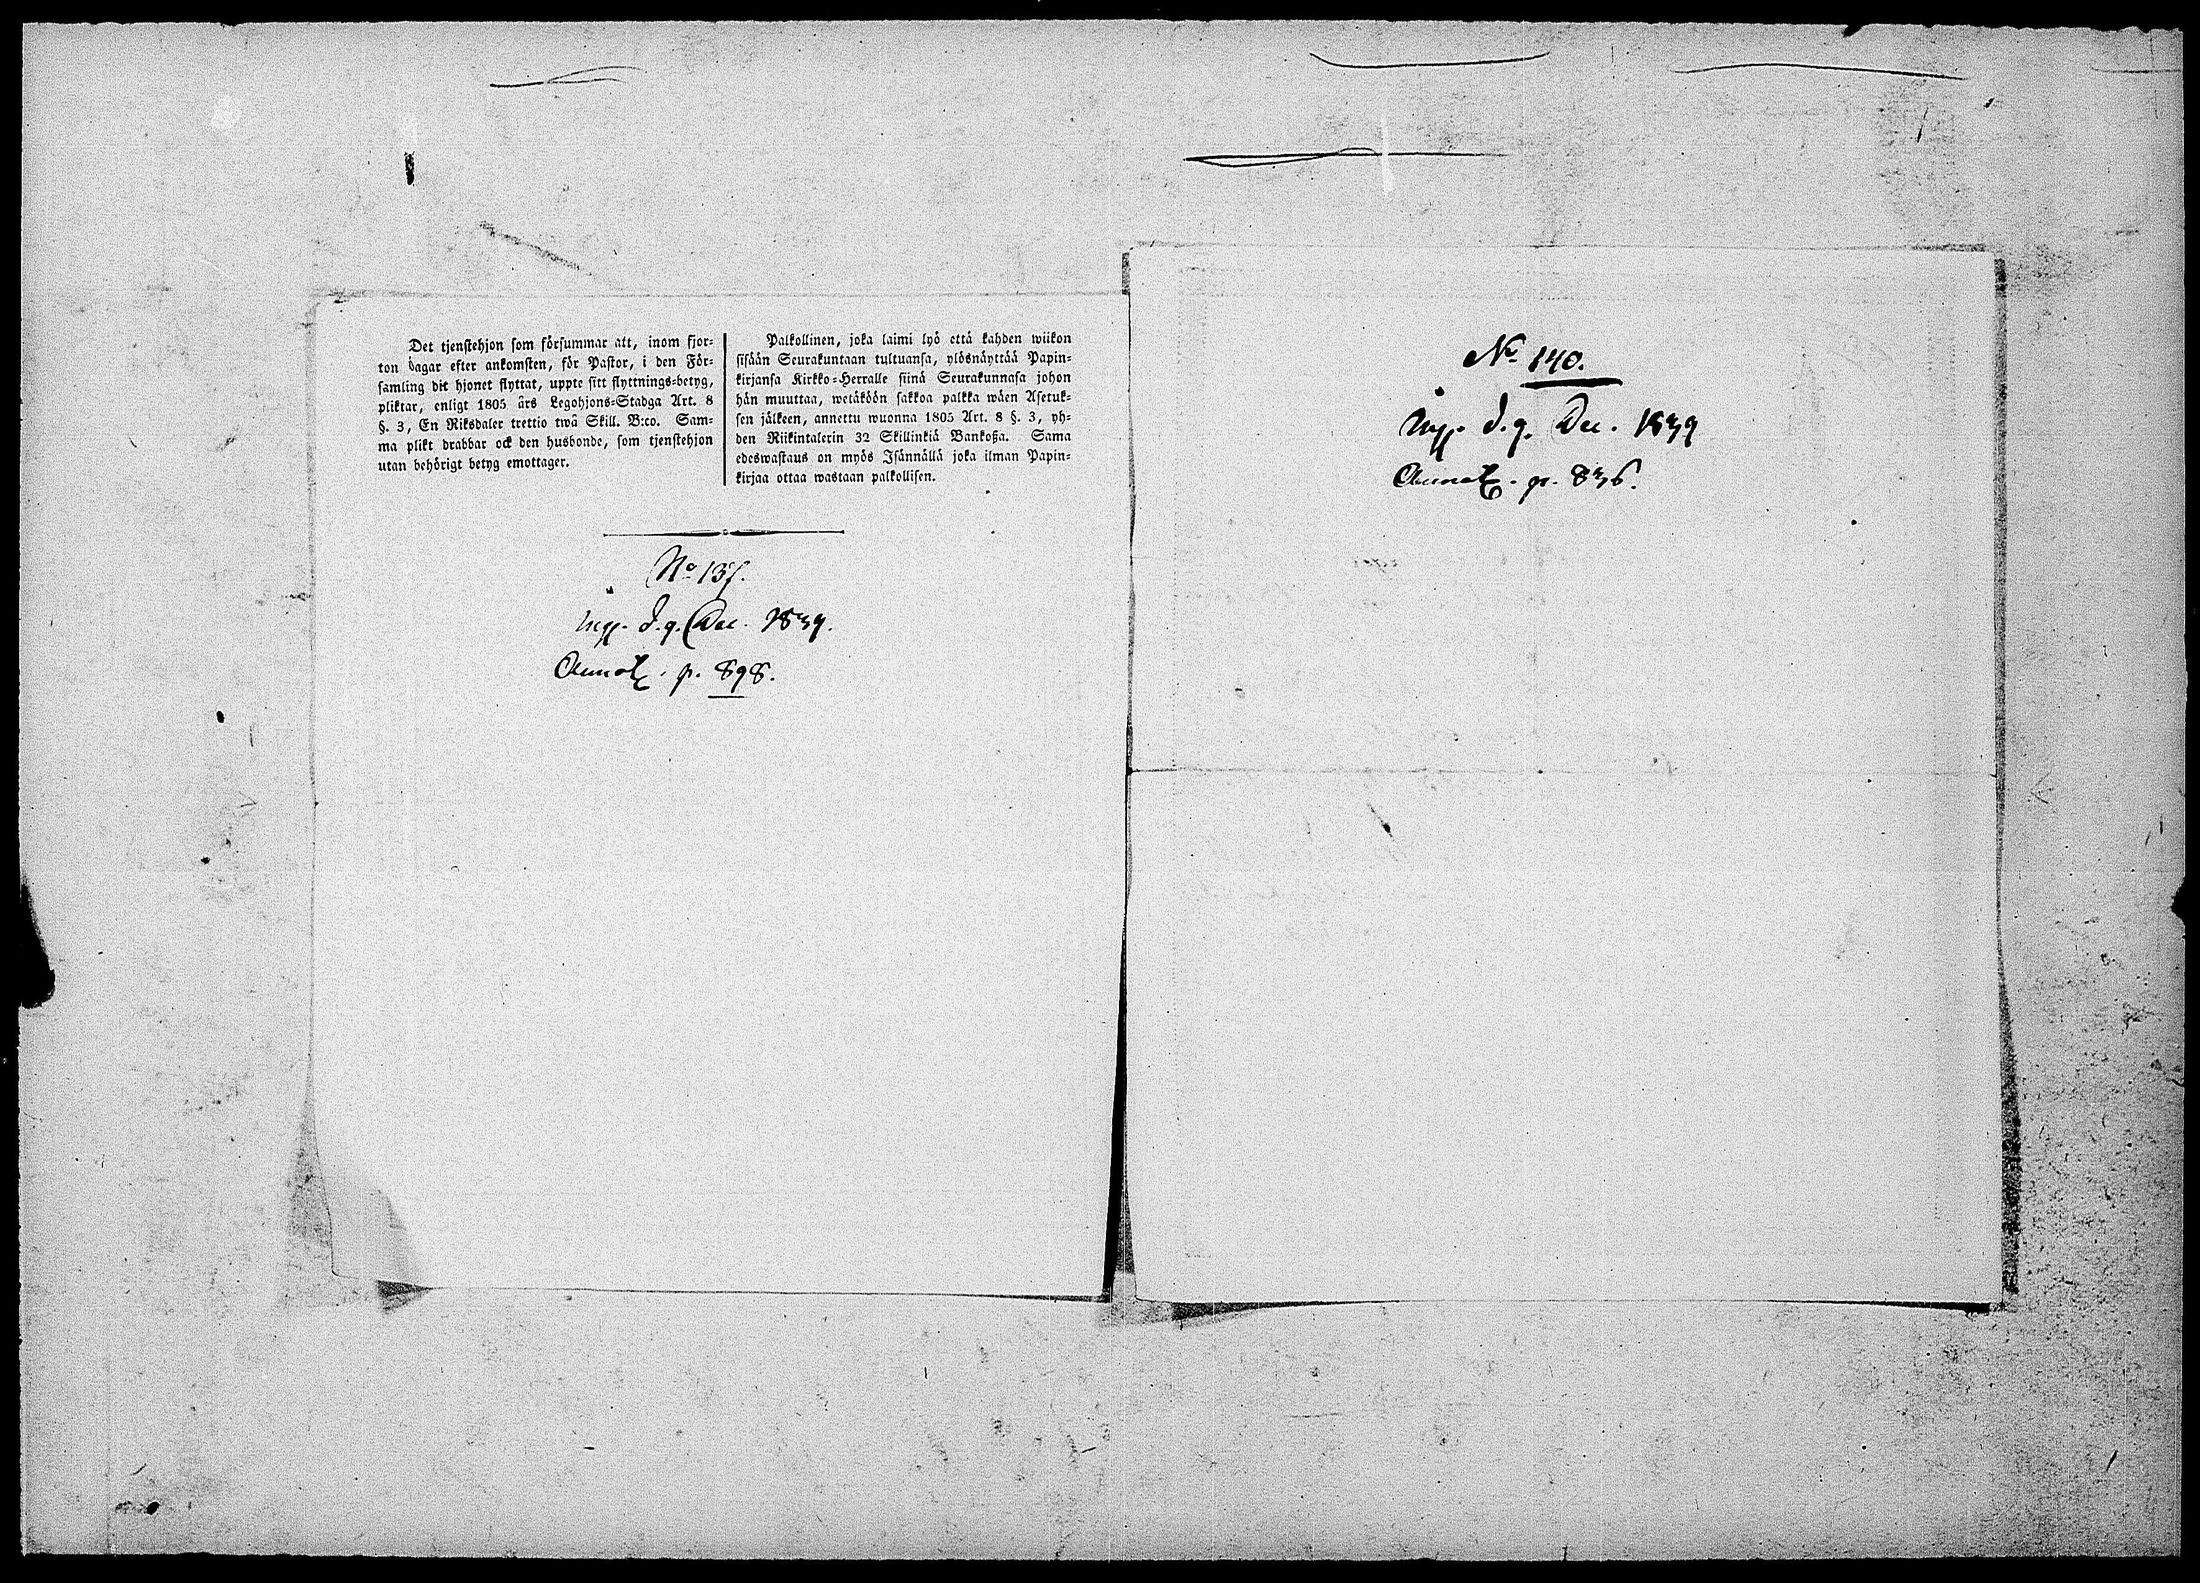 Det tjenstehjon som försummar att, inom fjor-
ton dagar efter ankomsten, för Pastor, i den För-
samling dit hjonet flyttat, uppte sitt flyttnings-betyg,
pliktar, enligt 1805 års Legohjons-Stadga Art. 8
§. 3, En Riksdaler trettio twå Skill. B:co. Sam-
ma plikt drabbar ock den husbonde, som tjenstehjon
utan behörigt betyg emottager.
Palkollinen, joka laimi lyö että kahden wiikon
sisään Seurakuntaan tultuansa, ylösnäyttää Papin-
kirjansa Kirkko-Herralle siinä Seurakunnasa johon
hän muuttaa, wetäköön sakkoa palkka wäen Asetuk-
sen jälkeen, annettu wuonna 1805 Art. 8 §. 3, yh-
den Riikintalerin 32 Skillinkiä Bankoßa. Sama
edeswastaus on myös Isännällä joka ilman Papin-
kirjaa ottaa wastaan palkollisen.
No 137.
Ing. d. 9. Dec. 1839.
Annot. p. 898.
No 140.
Ing. d. 9. Dec. 1839
Annot. p. 836.